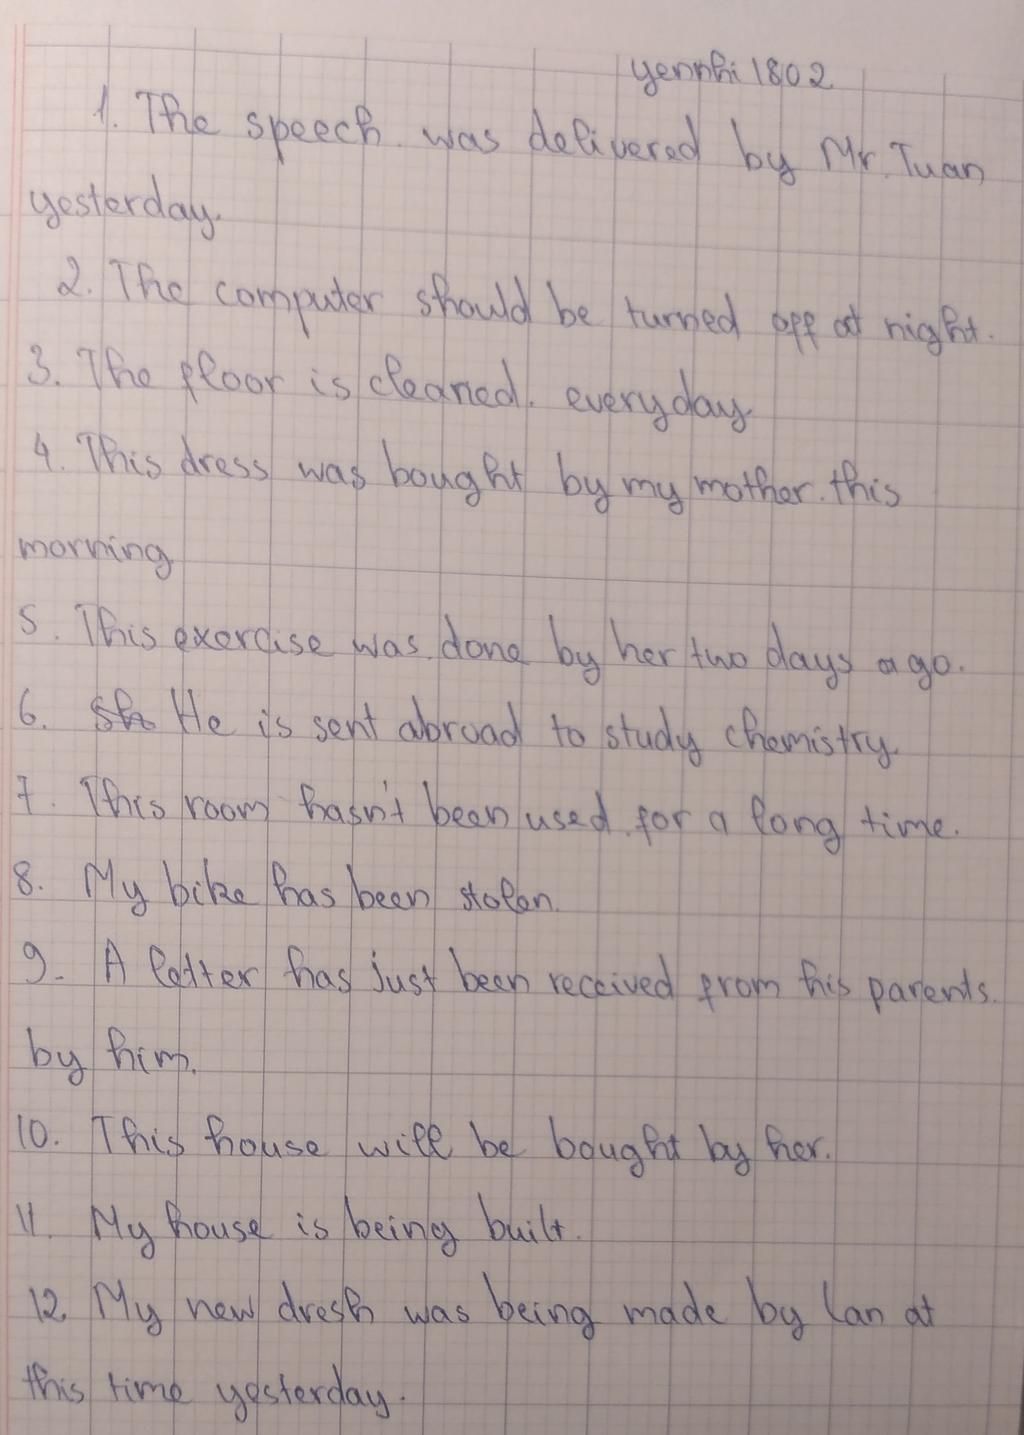 yennhi 1802
1. The speech was delivered by Mr. Tuan
yesterday.
2. The computer should be turned off at night.
3. The floor is cleaned. everyday.
4. This dress was bought by my mother. this
morning
5. This exercise was done by her two days ago.
6. He is sent abroad to study chemistry.
7. This room hasn't been used for a long time.
8. My bike has been stolen.
9. A letter has just been received from his parents.
by him.
10. This house will be bought by her.
11. My house is being built.
12. My new dresh was being made by Lan at
this time yesterday.